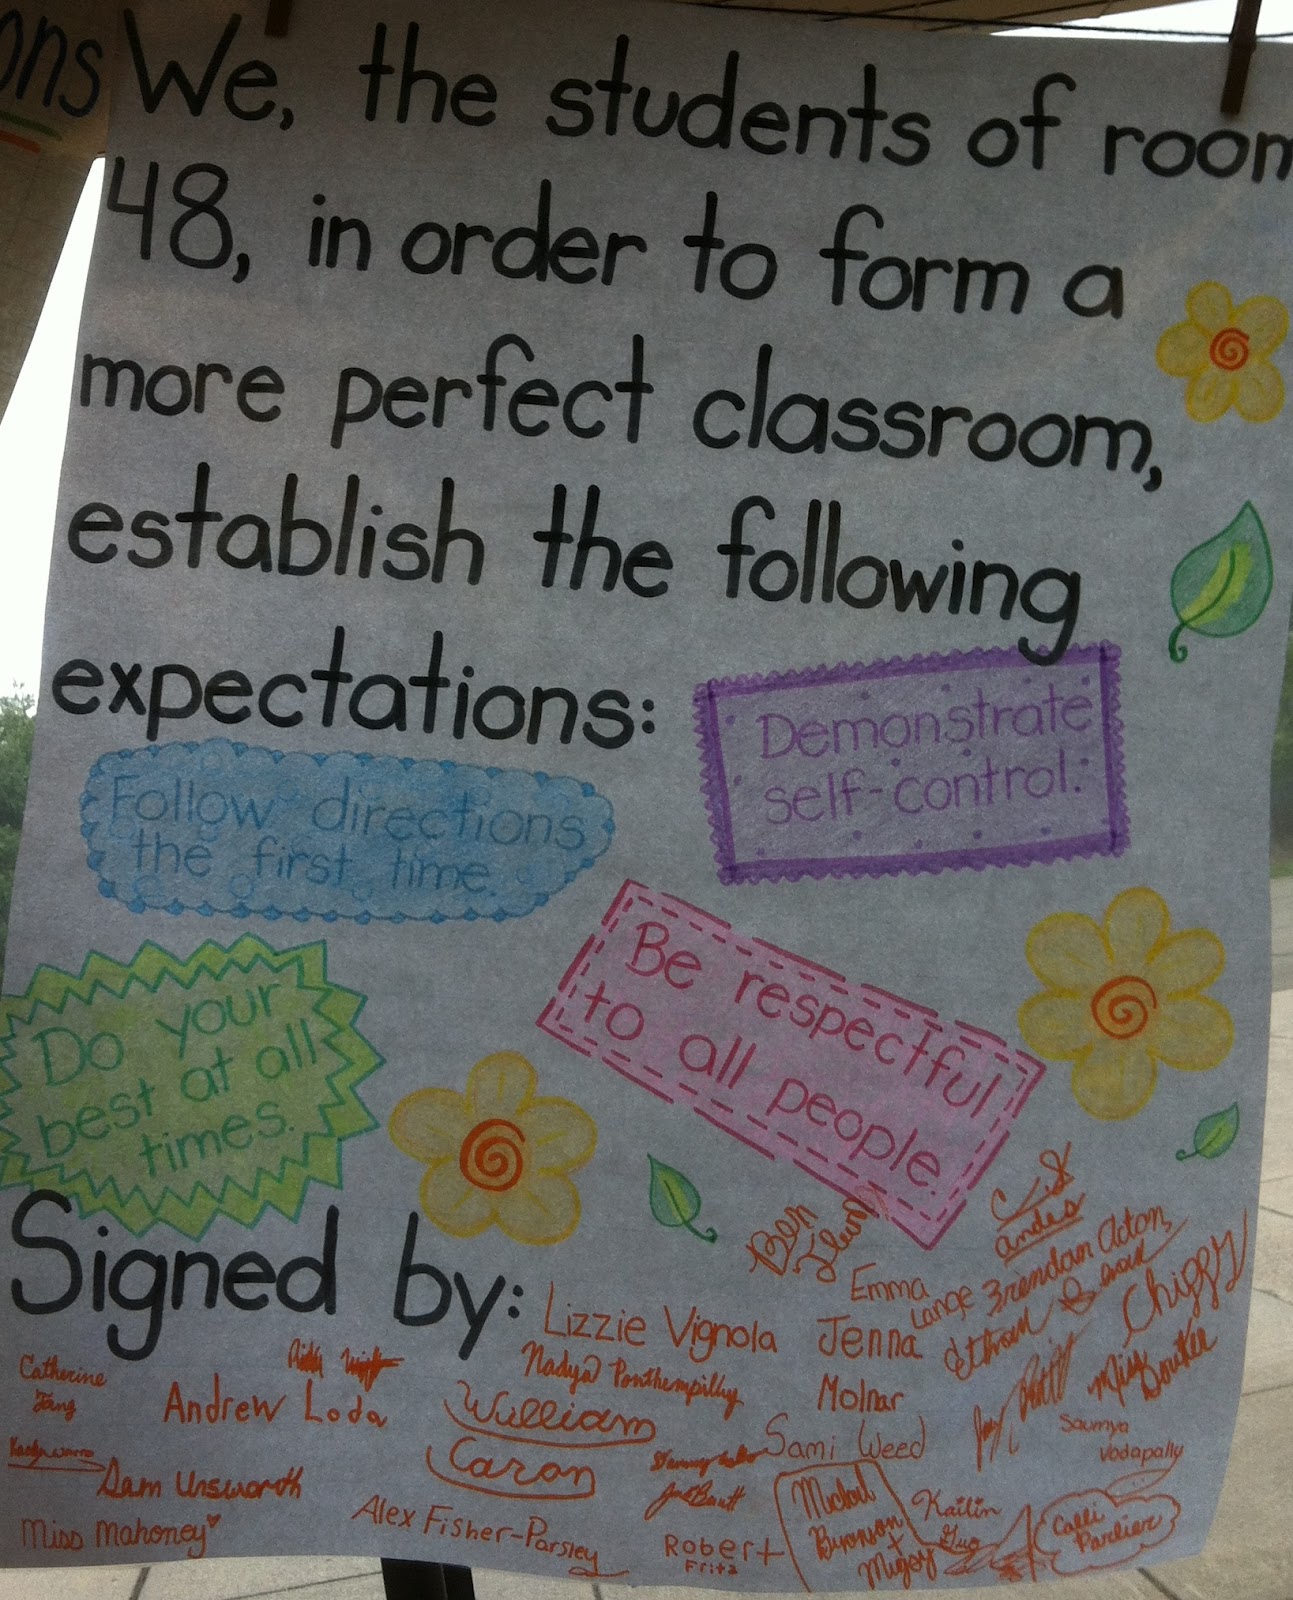 ons
We, the students of room
48, in order to form a
more perfect classroom,
establish the following
expectations:
Demonstrate
self-control.
Follow directions
the first time.
Be respectful
to all people.
Do your
best at all
times.
Signed by:
Ben
Emma
Lange
Brendan Acton
Ethan
Chiggy
Lizzie Vignola
Jenna
Molnar
Miss
Catherine
Andrew Loda
Nadya Ponthempilly
William
Caron
Sami Weed
Saumya
Vodapally
Sam Unsworth
Miss Mahoney
Alex Fisher-Parsley
Robert
Fritz
Michael
Kaitin
Guo
Calli
Parlier